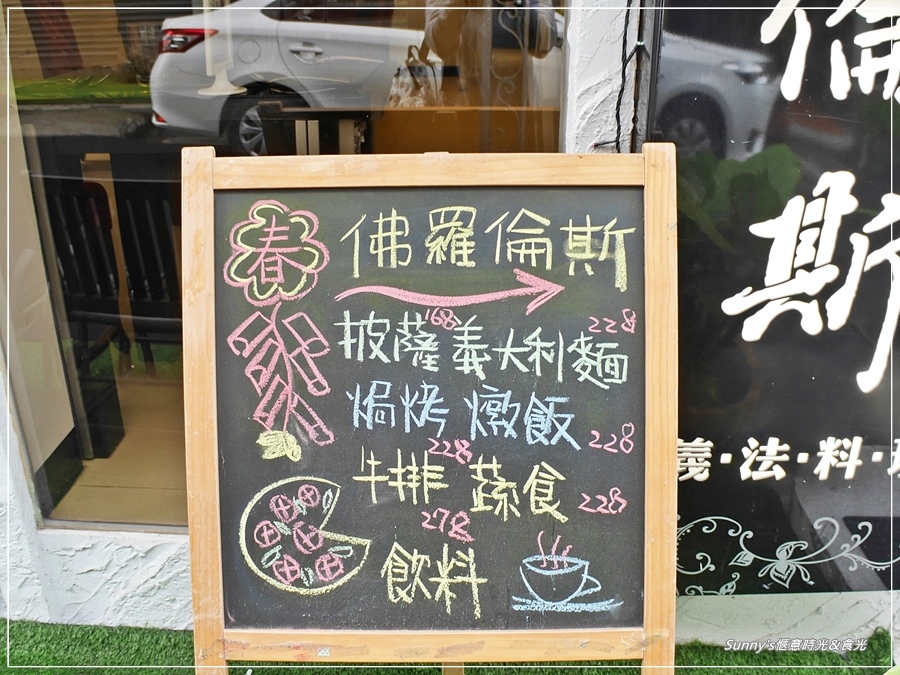 春
佛羅倫斯
披薩 168 義大利麵 228
焗烤 228 燉飯 228
牛排 278 蔬食 228
飲料
倫
斯
義·法·料·理
Sunny's愜意時光&食光